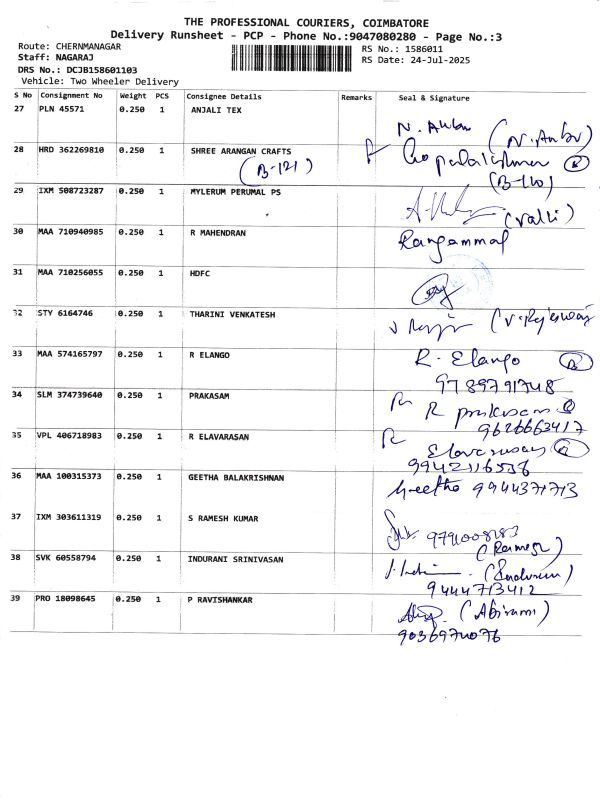 THE PROFESSIONAL COURIERS, COIMBATORE
Delivery Runsheet - PCP - Phone No.:9047080280 - Page No.:3
Route: CHERNMANAGAR RS No.: 1586011
Staff: NAGARAJ RS Date: 24-Jul-2025
DRS No.: DCJB158601103
Vehicle: Two Wheeler Delivery
S No Consignment No Weight PCS Consignee Details Remarks Seal & Signature
27 PLN 45571 0.250 1 ANJALI TEX
N. Anbu (N. Anbu)
28 HRD 362269810 0.250 1 SHREE ARANGAN CRAFTS
(B-121) Gopalakrishnan
(B-120)
29 IXM 508723287 0.250 1 MYLERUM PERUMAL PS
(Valli)
30 MAA 710940985 0.250 1 R MAHENDRAN Rangammal
31 MAA 710256055 0.250 1 HDFC
32 STY 6164746 0.250 1 THARINI VENKATESH
(V. Rajeswari
33 MAA 574165797 0.250 1 R ELANGO R. Elango
9789791748
34 SLM 374739640 0.250 1 PRAKASAM R prakasam
9626663417
35 VPL 406718983 0.250 1 R ELAVARASAN Elavarasan
9942116538
36 MAA 100315373 0.250 1 GEETHA BALAKRISHNAN Geetha 9944371713
37 IXM 303611319 0.250 1 S RAMESH KUMAR
9791008183
(Ramesh)
38 SVK 60558794 0.250 1 INDURANI SRINIVASAN
9444713412
39 PRO 18098645 0.250 1 P RAVISHANKAR (Abirami)
9036974076